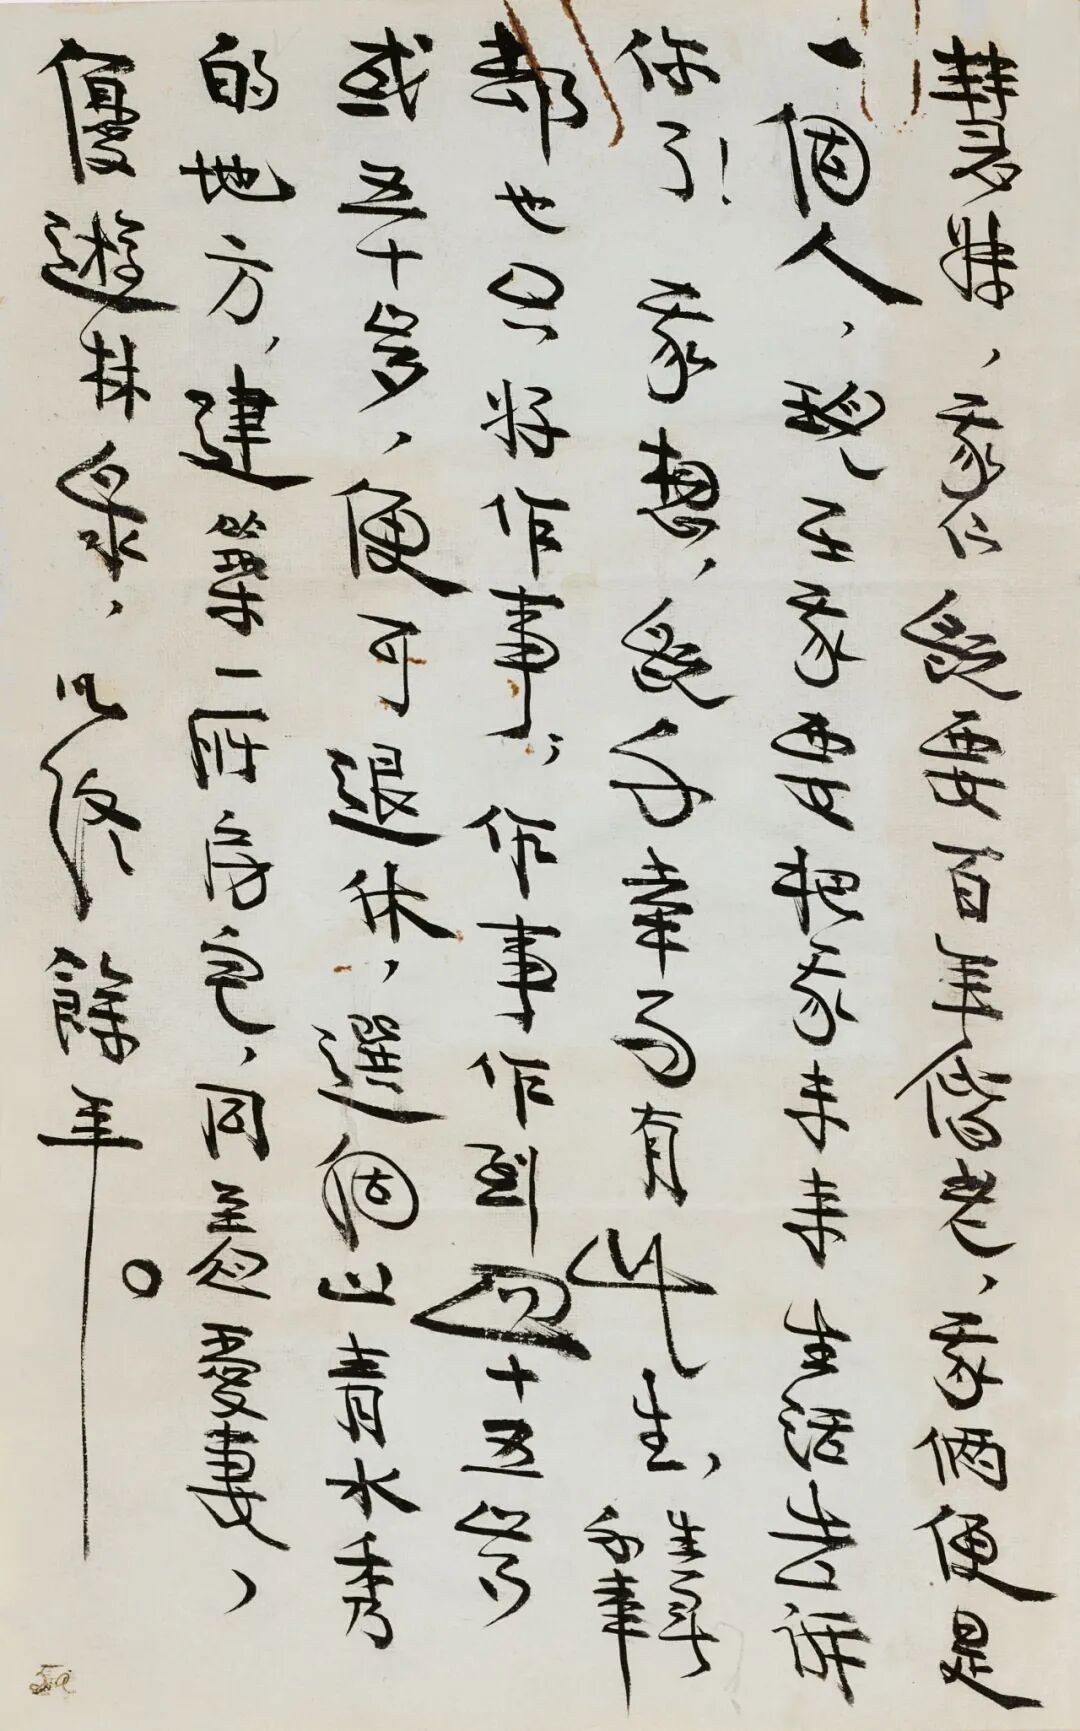 慧妹,我们既要百年偕老,我俩便是
一個人,現在我要把我未来生活告訴
你了!我想,既不幸而有此生,幸與不幸
都也只好作事;作事作到四十五岁
或五十岁,便可退休,選個山青水秀
的地方,建築一所房屋,同愛妻,
優遊林泉,以終餘年。